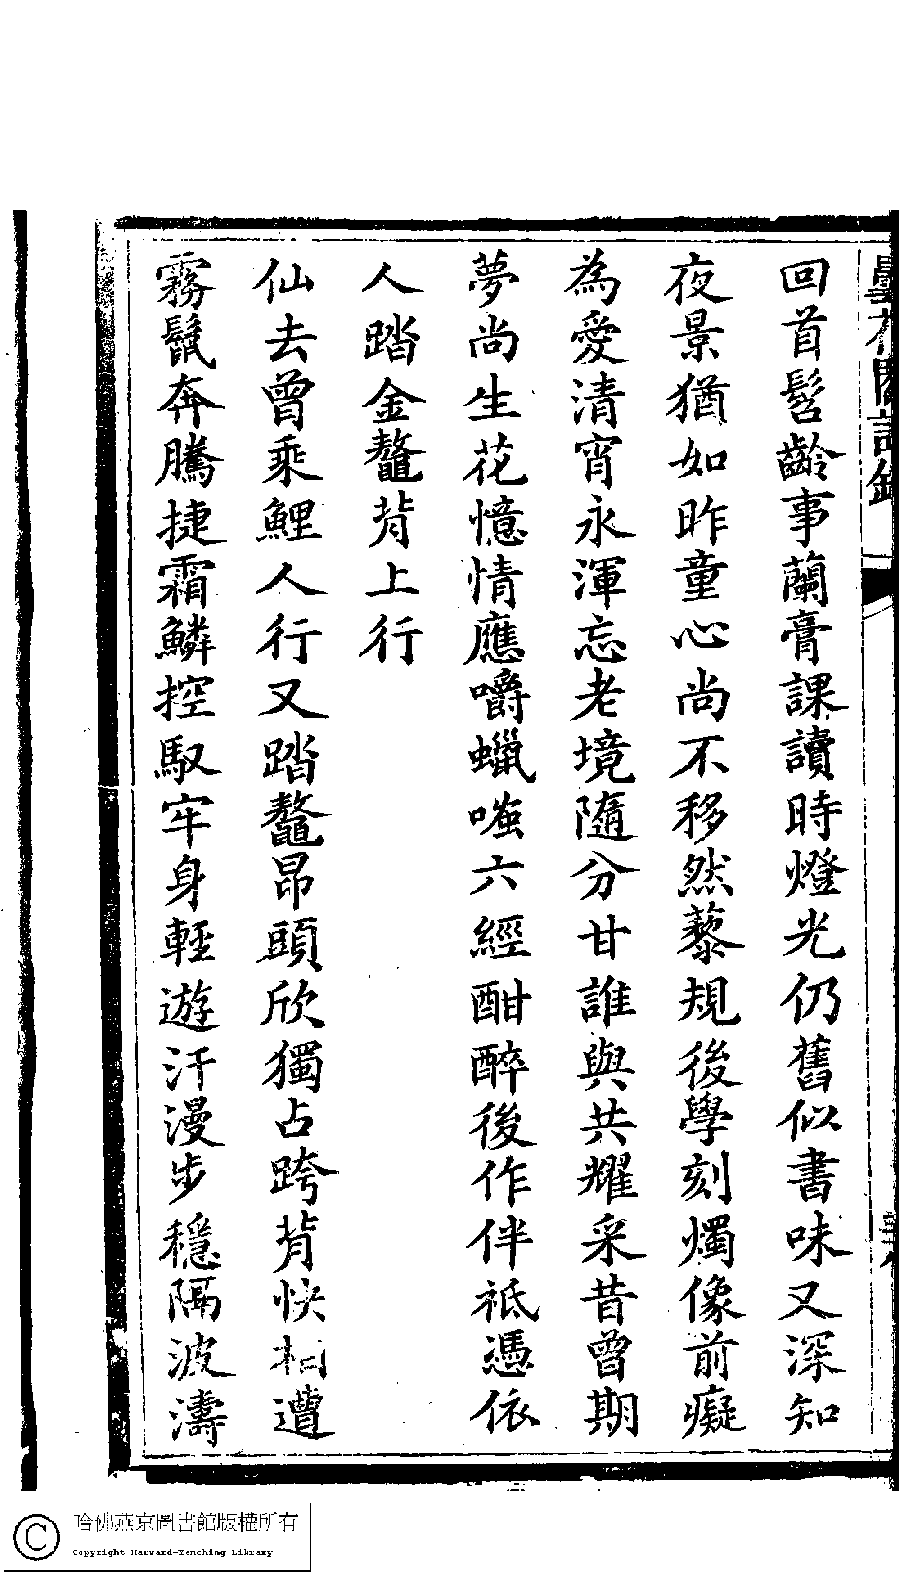 回首髫齡事蘭膏課讀時燈光仍舊似書味又深知
夜景猶如昨童心尚不移然藜規後學刻燭像前癡
為愛清宵永渾忘老境隨分甘誰與共耀采昔曾期
夢尚生花憶情應嚼蠟嗤六經酣醉後作伴祗憑依
人踏金鼇背上行
仙去曾乘鯉人行又踏鼇昂頭欣獨占跨背快相遭
霧鬛奔騰捷霜鱗控馭牢身輕遊汗漫步穩隔波濤
哈佛燕京圖書館版權所有
Copyright Harvard-Yenching Library